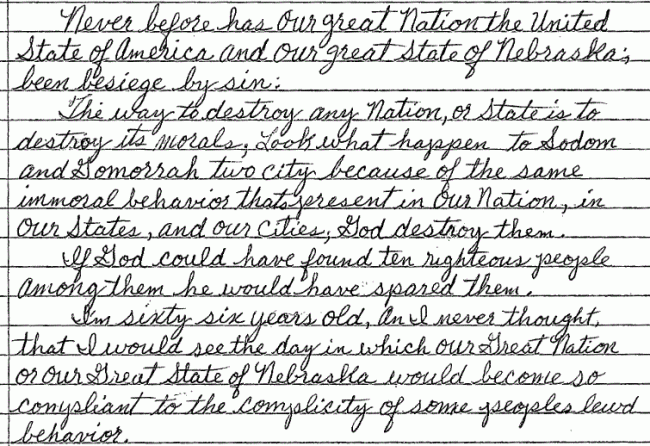 Never before has Our great Nation the United
State of America and Our great State of Nebraska;
been besiege by sin:
The way to destroy any Nation, or State is to
destroy its morals; Look what happen to Sodom
and Gomorrah two city because of the same
immoral behavior thats present in Our Nation, in
Our States, and our Cities; God destroy them.
If God could have found ten righteous people
among them he would have spared them.
I'm sixty six years old, An I never thought,
that I would see the day in which our Great Nation
or our Great State of Nebraska would become so
compliant to the complicity of some peoples lewd
behavior.